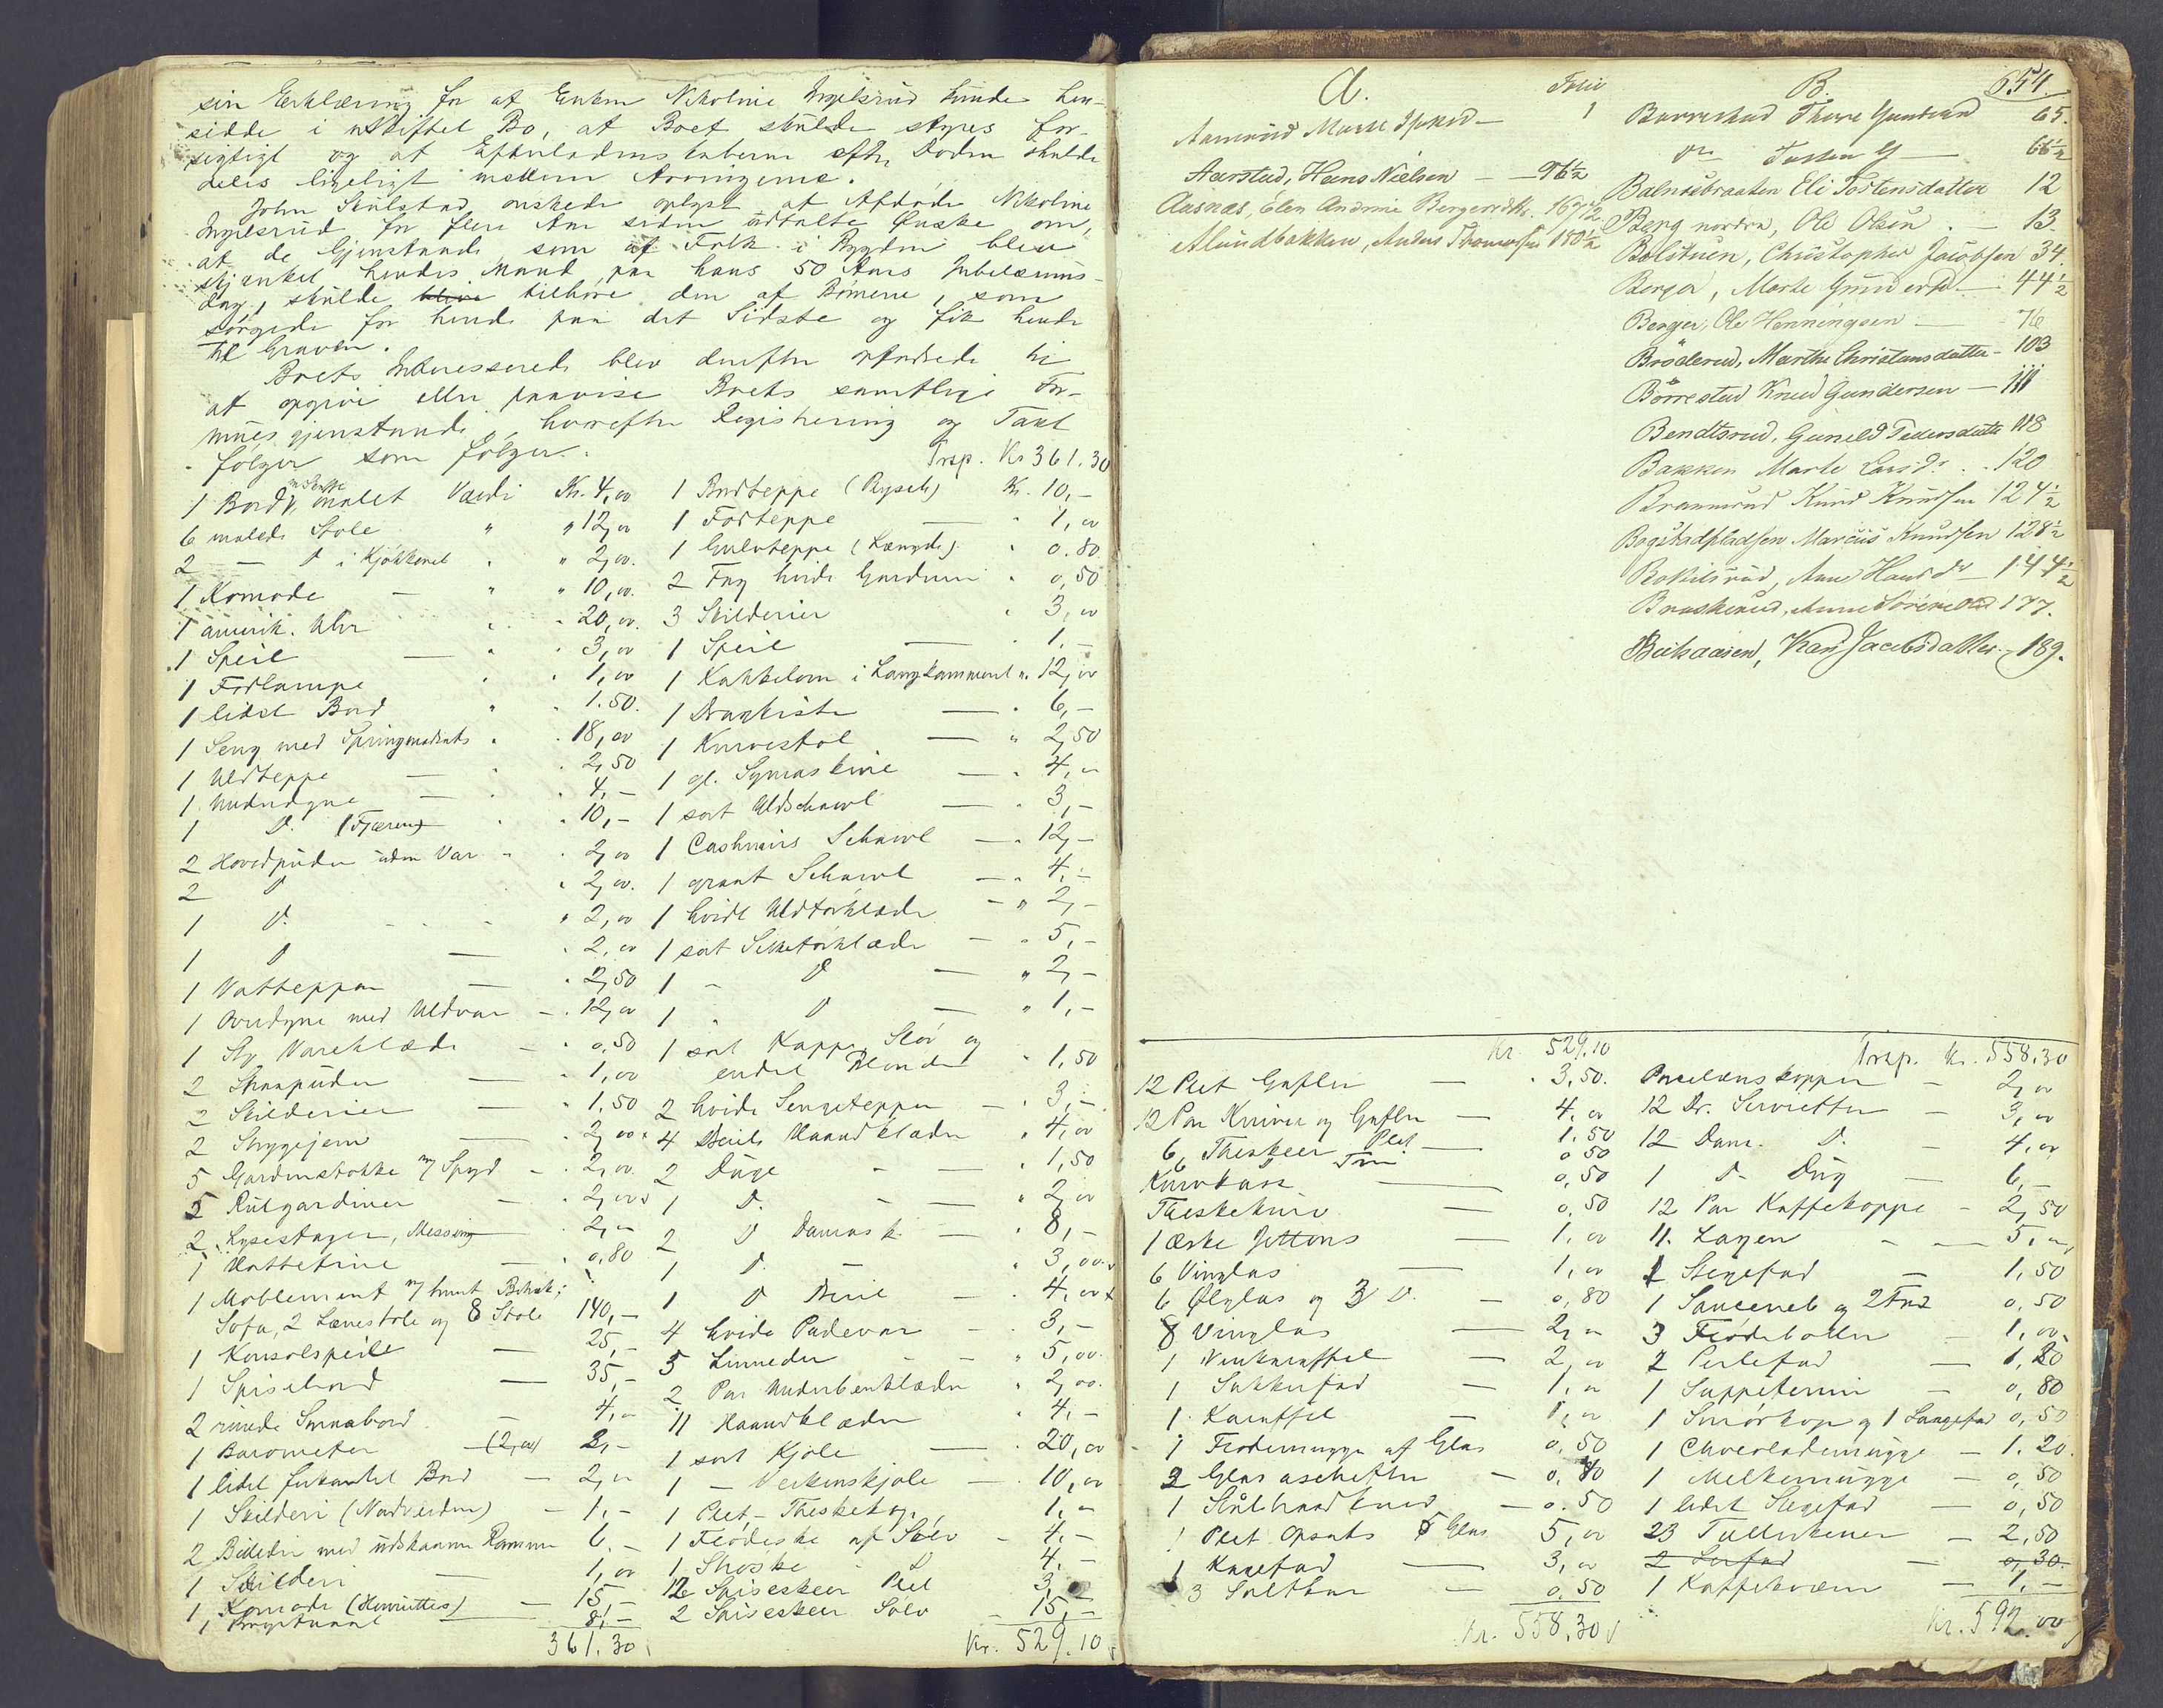 sin Erklæring for at Enken Nikoline Ingelsrud kunde hen-
sidde i uskiftet Bo, at Boet skulde styres for-
sigtigt og at Efterladenskaberne efter Døden skulde
deles ligeligt mellem Arvingerne.
John Skulstad ønskede oplyst at Afdøde Nikoline
Ingelsrud for flere Aar siden udtalte Ønske om,
at de Gjenstande som af Folk i Bygden blev
skjænket hendes Mand paa hans 50 Aars Jubelæums-
dag, skulde blive tilhøre den af Børnene, som
sørgede for hende paa det Sidste og fik hende
til Graven.
Boets Interesserede blev derefter opfordrede til
at opgive eller paavise Boets samtlige For-
mues gjenstande, hvorefter Registrering og Taxt
følger som følger:
1 Bord malet Værdi Kr. 4,00
6 malede Stole " " 12,00
2 — D i Kjøkkenet " " 2,00
1 Komode — " " 10,00
1 amerik. Uhr " " 20,00
1 Speil — " " 3,00
1 Fodlampe " 1,00
1 lidet Bord " " 1.50
1 Seng med Springmadrats " " 18,00
1 Uldteppe — " 2,50
1 Underdyne — " 4,-
1 D. (Fjæren) " " 10,-
2 Hovedpuder uden Var " " 2,00
2 D " 2,00
1 D. " 2,00
1 D — " 2,00
1 Vatteppe — " 2,50
1 Overdyne med Uldvar — " 12,00
1 Sty Vareklæde — " 0,50
2 Straapuder — " 1,00
2 Skilderier — " 1.50
2 Strygejern — " 2,00
5 Gardinstokke m/ Spyd — " 2,00
5 Rulgardiner — " 2,00
2 Lysestager, Messing " 2,00
1 " 0,80
1 Møblement m/ Betræk;
Sofa, 2 Lænestole og 8 Stole 140,-
1 Konsolspeile — 25,-
1 Spisebord — 35,-
2 runde Smaabord — 4,00
1 Barometer (2,00) 2,-
1 lidet firkantet Bord — 2,00
1 Skilderi (Nadverden) — 1,-
2 Billeder med udskaarne Ramme 6,-
1 Skilderi — 1,00
1 Komode (Henriettes) — 15,-
1 — 8,-
361.30
Trsp. Kr 361.30
1 Bordteppe (Rysch) Kr. 10,-
1 Fodteppe — " 1,00
1 Gulvteppe (Længde) " 0.80
2 Fag hvide Gardiner " 0,50
3 Skilderier " 3,00
1 Speil — 1,-
1 Kakkelovn i Langkammeret " 12,00
1 Dragkiste — " 6,-
1 Kurvestol — " 2,50
1 gl. Symaskine — " 4,00
1 sort Uldschawl — " 3,-
1 Cashmirs Schawl — " 12,-
1 graat Schawl — " 4,-
1 hvidt Uldtørklæde — " 2,-
1 sort Silketørklæde — " 5,-
1 — D — " 2,-
1 " D — " 1,-
1 sort Kappe, Slør og
endel Blonder " 1,50
2 hvide Sengetepper — " 3,-
4 Dreils Haandklæder " 4,00
2 Duge — " 1,50
1 D. — " 2,00
2 D Damask — " 8,-
1 D. " 3,00
1 D Dreil — " 4,00
4 hvide Pudevar — " 3,-
5 Linneder — " 5,00
2 Par Underbenklæder " 2,00.
11 Haandklæder " 4,-
1 sort Kjole — " 20,00
1 — Verkenskjole — " 10,00
1 Plet-Theskekop 1,00
1 Flødeske af Sølv — 4,-
1 Strøske — D 4,-
12 Spiseskeer Plet 3,
2 Spiseskeer Sølv — 15,-
Kr. 529.10
654.
A. Folio
Aamrud Marte — 1
Aarstad, Hans Nielsen — 96½
Aasnæs, Elen Andrine Bergersdtr. 167½
Alundbakken, Anders Thomesen 180½
B.
Borrestad Thore Gundersen 65.
do Tosten G — 66½
Balnesbraaten Eli Tostensdatter 12
Berg nordre, Ole Olsen — 13.
Bølstuen, Christopher Jacobsen 34.
Berger, Marte Gundersd — 44½
Berger, Ole Henningsen — 76
Bröderud, Marthe Christiansdatter - 103
Börrestad Knud Gundersen — 111
Bendtsrud, Guneld Pedersdatter 118
Bakken Marte Larsdr. . . 120
Brannerud Knud Knudsen 124½
Bogstadpladsen Marcus Knudsen 128½
Bokilsrud, Anne Hansdr — 144½
Braskerud, Anne Sörine 177.
Kari Jacobsdatter - 189.
Kr 529.10
12 Plet Gafler — " 3,50.
12 Par Kniver og Gafler — 4,00
6 Theskeer Plet — 1.50
6 D Tin 0 50
Knivkasse — 0,50
Theskekurv — 0,50
1 æske Jettons — 1,00
6 Vinglas — 1,00
6 Ølglas og 3 D. — 0,80
8 Vinglas — 2,00
1 Vinkaraffel — 2,00
1 Sukkerfad — 1,00
1 Karaffel — 1,00
1 Flødemugge af Glas 0,50
2 Glas aschetter — 0,40
1 — 0.50
1 Plet Opsats 5 Glas 5,00
1 Kagefad — 3,00
3 Saltkar — 0.50
Kr. 558,30
Trsp. Kr. 558.30
Porcelænskopper — 2,00
12 Dr. Servietter — 3,00
12 Dam. D. — 4,00
1 D- Dug — 6,-
12 Par Kaffekopper — 2,50
11. Lagen — 5,00
1 Stegefad — 1,50
1 Sauceneb og 2 Fad 0,50
3 Flødeboller — 1,00
2 Perlefad — 1,20
1 Suppeterrin — 0,80
1 Smørkop og 1 Langefad 0,50
1 Chocolademugge — 1.20
1 Melkemugge — 0,50
1 lidet Stegefad — 0,50
23 Tallerkener — 2,50
2 — 0,30
1 Kaffekværn — 1,-
Kr. 592.00